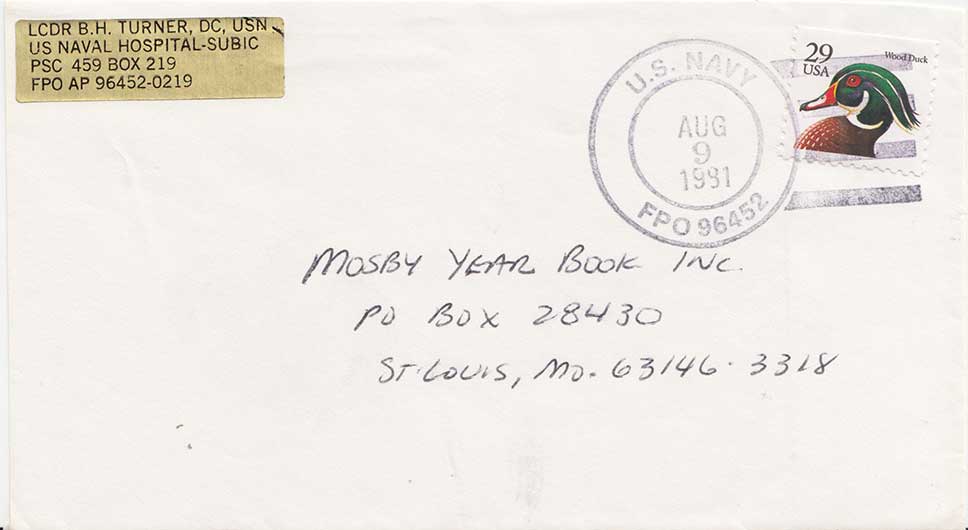 LCDR B.H. TURNER, DC, USN
US NAVAL HOSPITAL-SUBIC
PSC 459 BOX 219
FPO AP 96452-0219
U.S. NAVY
AUG
9
1991
FPO 96452
29
USA
Wood Duck
MOSBY YEAR BOOK INC.
PO BOX 28430
ST. LOUIS, MO. 63146-3318